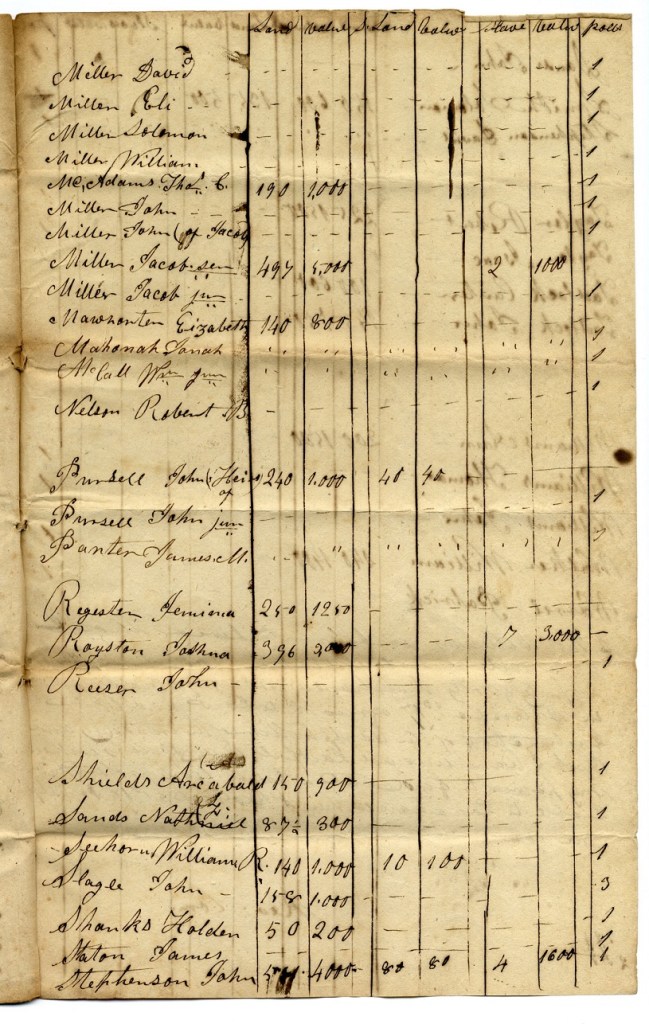 Land Value S. Land Value Slave Value poll
Miller David - - - - - - - 1
Miller Eli - - - - - - - 1
Miller Solomon - - - - - - - 1
Miller William - - - - - - - 1
McAdams Thos. C. 190 1,000 - - - - 1
Miller John - - - - - - - 1
Miller John (of Jacob - - - - - - 1
Miller Jacob sen 497 5,000 - - 2 1000
Miller Jacob jun - - - - - - 1
Mawhorter Eizabeth 140 800 - - - -
Mahonah Jonah " " " " " " 1
McCall Wm jun " " " " " " 1
Nelson Robert B. - - - - - - 1
Pursell John (Heirs of) 240 1,000 40 40 - -
Pursell John jun - - - - - - 1
James M. - " " " " " 1
Register Jemima 250 1250 - - - -
Royston Joshua 396 7 3,000 -
Reeser John - - - - - - 1
Shields Arcabald 150 900 - - - - 1
Sands Nathniel 87½ 300 - - - - 1
Seehorn William R. 140 1,000 10 100 - - 1
Slagle John - 158 1,000 - - - - 3
Shanks Holden 50 200 - - - - 1
Staton James - - - - - - 1
Stephenson John 4000 80 80 4 1600 1